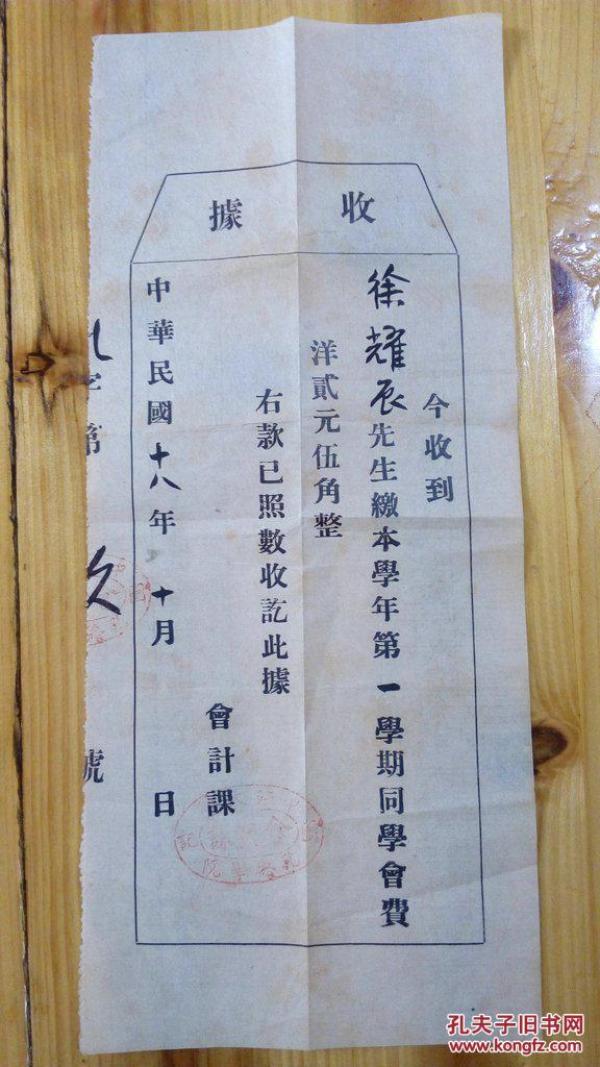 收據
今收到
徐耀辰先生繳本學年第一學期同學會費
洋貳元伍角整
右款已照數收訖此據
會計課
中華民國十八年十月 日
字第
號
孔夫子旧书网
www.kongfz.com